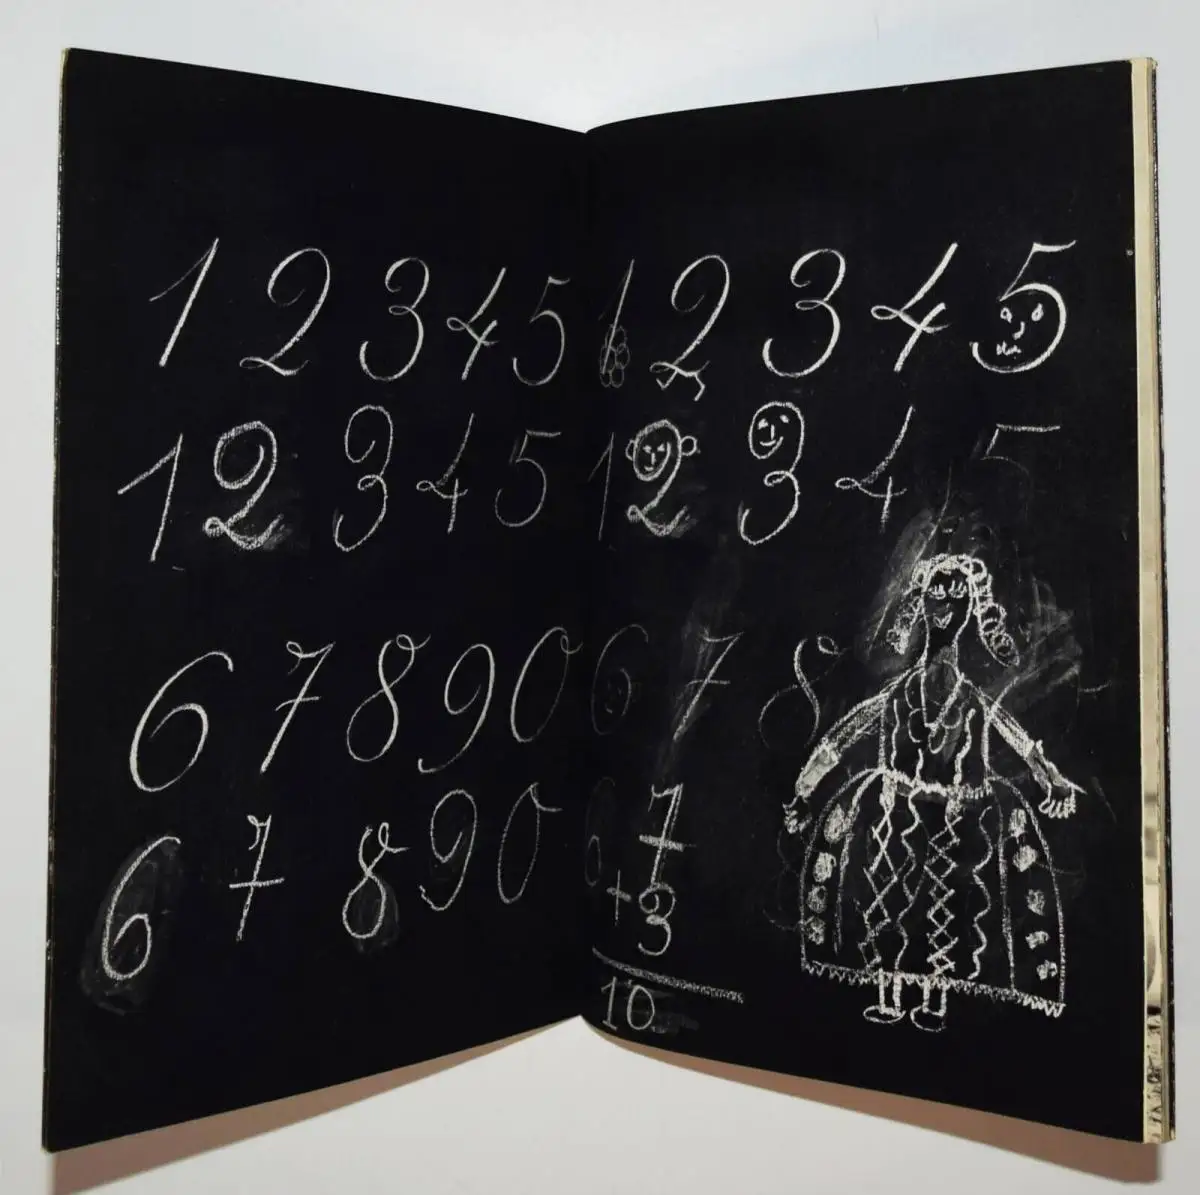 1 2 3 4 5
1 2 3 4 5
6 7 8 9 0
6 7 8 9 0
1 2 3 4 5
1 2 3 4 5
6 7 8
7
+3
10